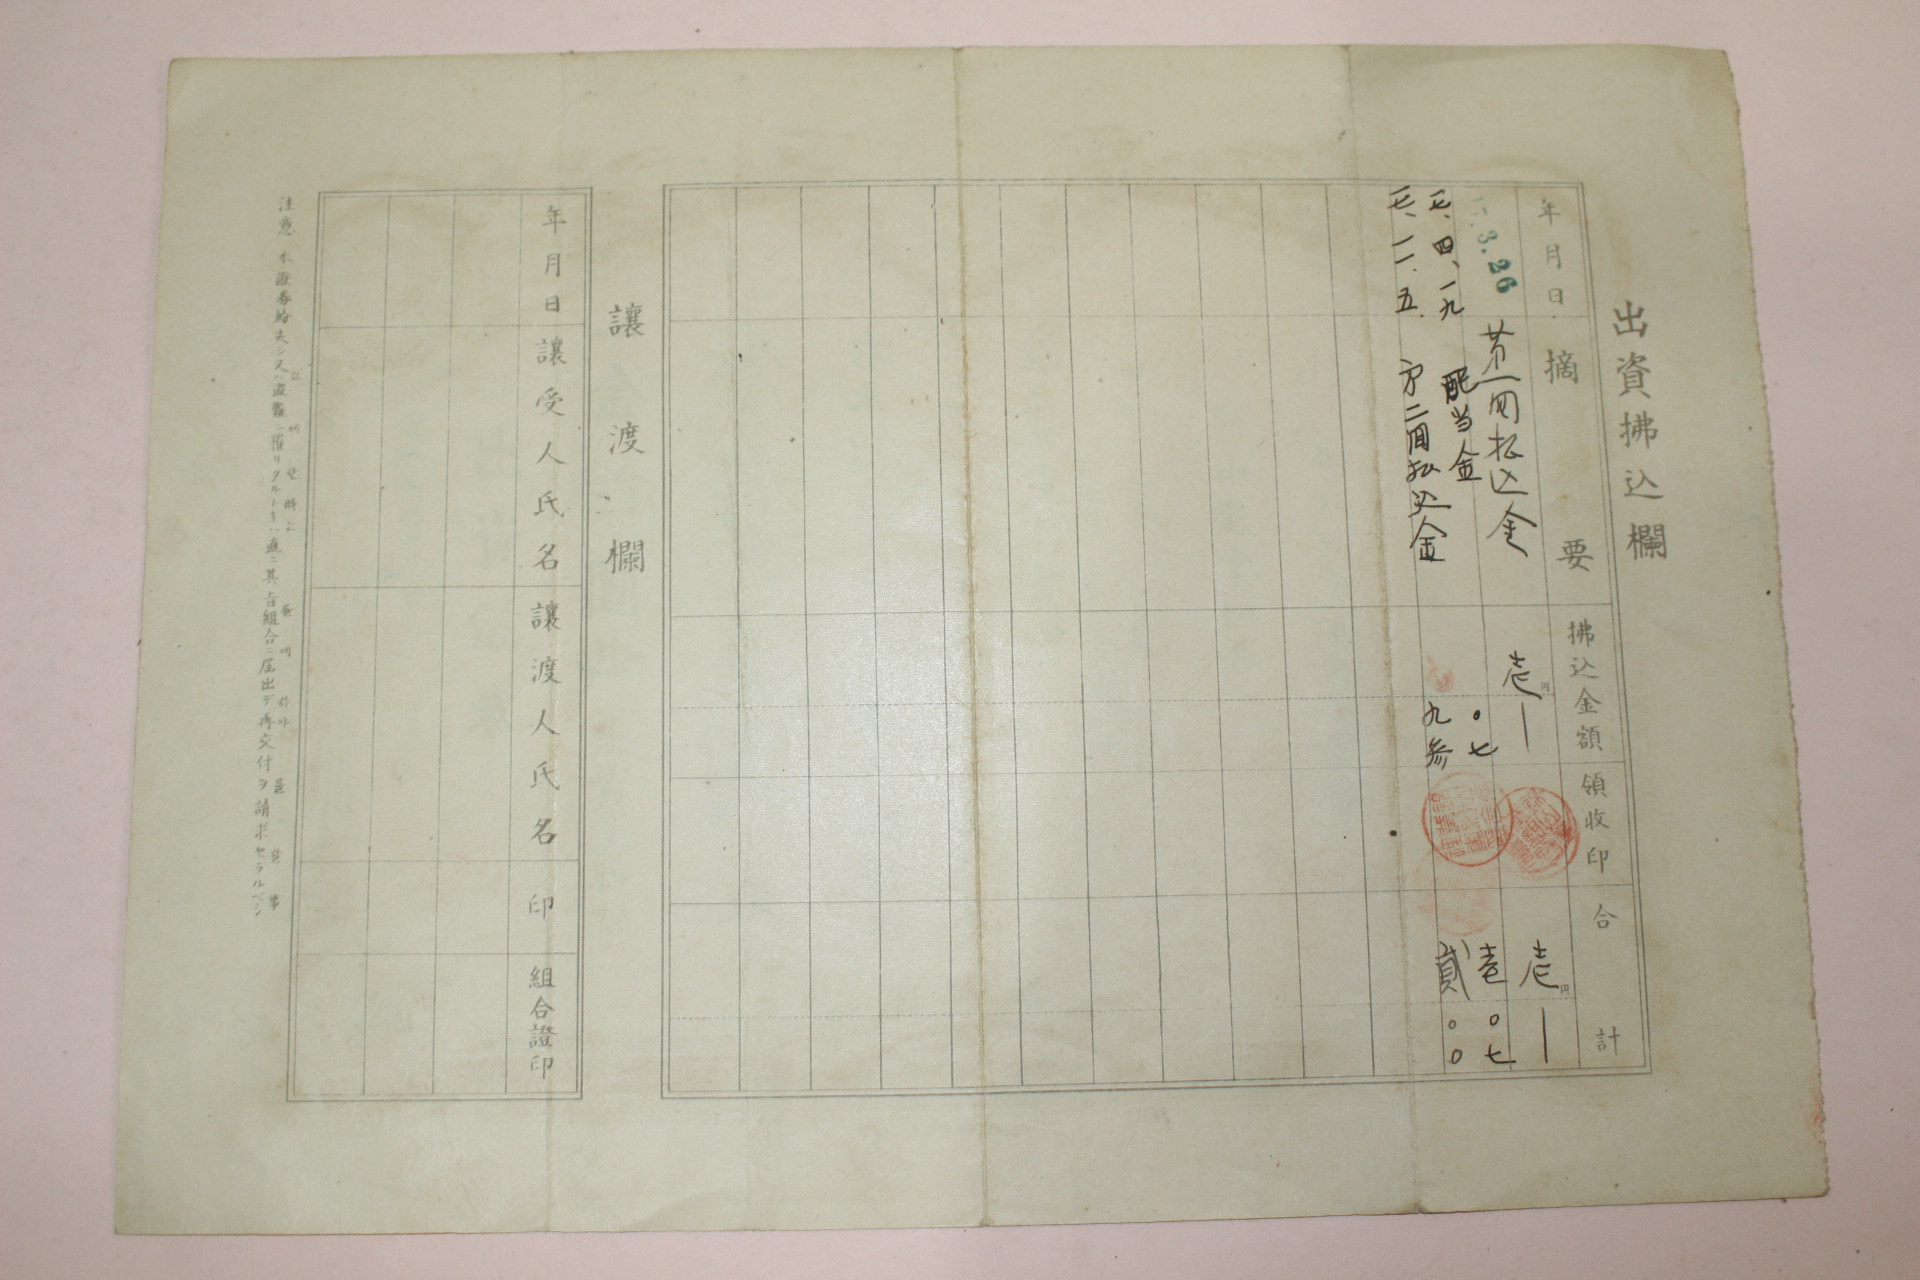 出資拂込欄
年月日
摘要
拂込金額
領收印
合計
.3.26
第一回払込金
壱円
|
壱円
|
七、四、一九
配当金
・七
壱
〇七
七、一一、五
第二回払込金
九参
貳
〇〇
讓渡欄
年月日
讓受人氏名
讓渡人氏名
印
組合證印
注意 本證券紛失シ又ハ盜難ニ罹リタルトキハ直ニ其旨組合ニ屆出デ再交付ヲ請求セラルベシ